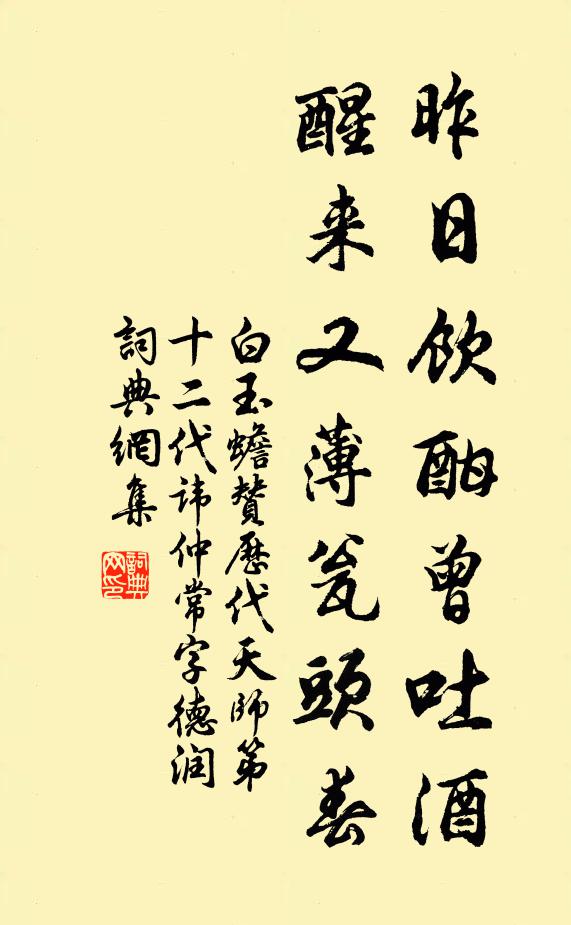 昨日饮酣曾吐酒
醒来又薄瓮頭春
白玉蟾贊歷代天師第
十二代諱仲常字德润
詞典網集
詞典网印